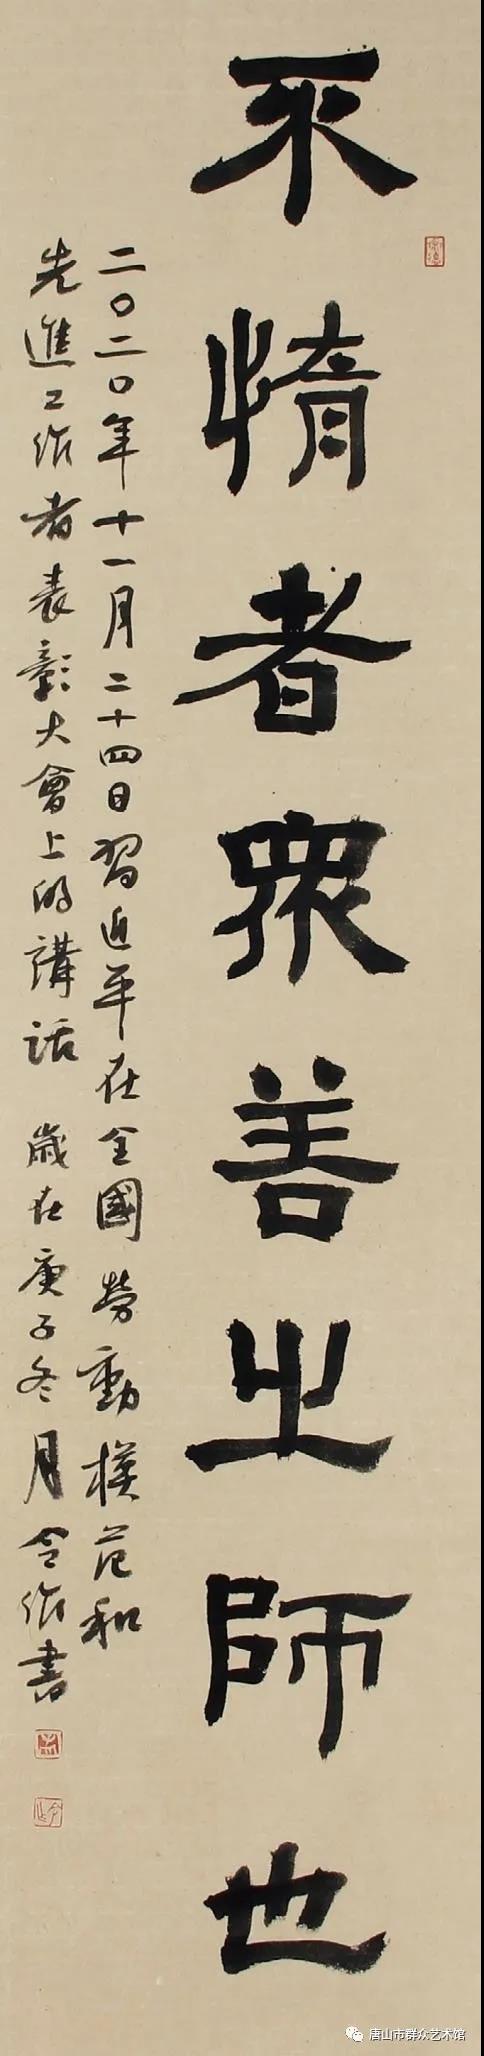 不惰者衆善之師也
二〇二〇年十一月二十四日習近平在全國勞動模范和
先進工作者表彰大會上的講話 歲在庚子冬月令作書
唐山市群众艺术馆